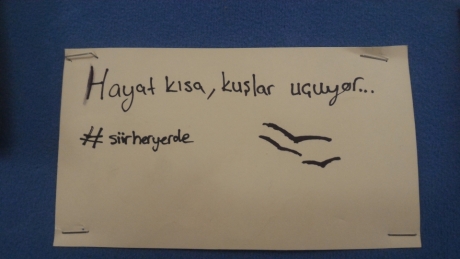 Hayat kısa, kuşlar uçuyor...
#siirheryerde